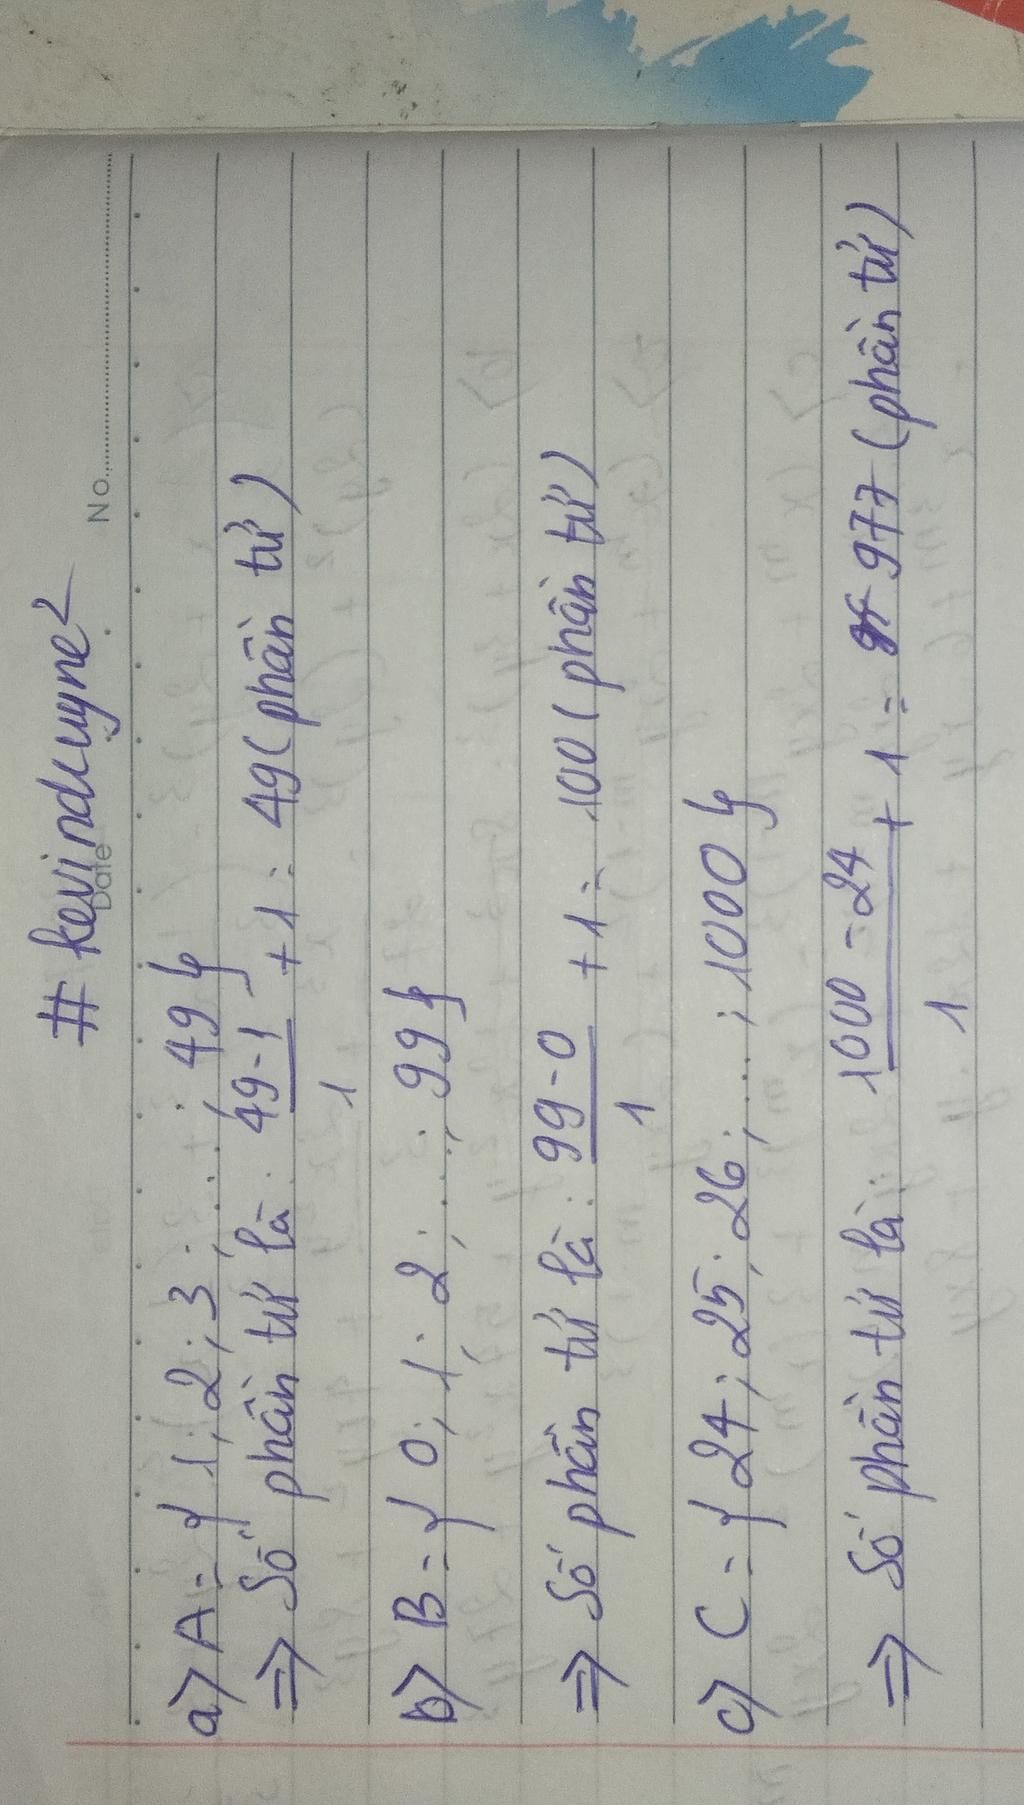 # kevinduyne2
No.
Date
a) A = { 1 ; 2 ; 3 ; ... ; 49 }
=> Số phần tử là : 49 - 1 + 1 = 49 (phần tử)
1
b) B = { 0 ; 1 ; 2 ; ... ; 99 }
=> Số phần tử là : 99 - 0 + 1 = 100 (phần tử)
1
c) C = { 24 ; 25 ; 26 ; ... ; 1000 }
=> Số phần tử là : 1000 - 24 + 1 = 977 (phần tử)
1